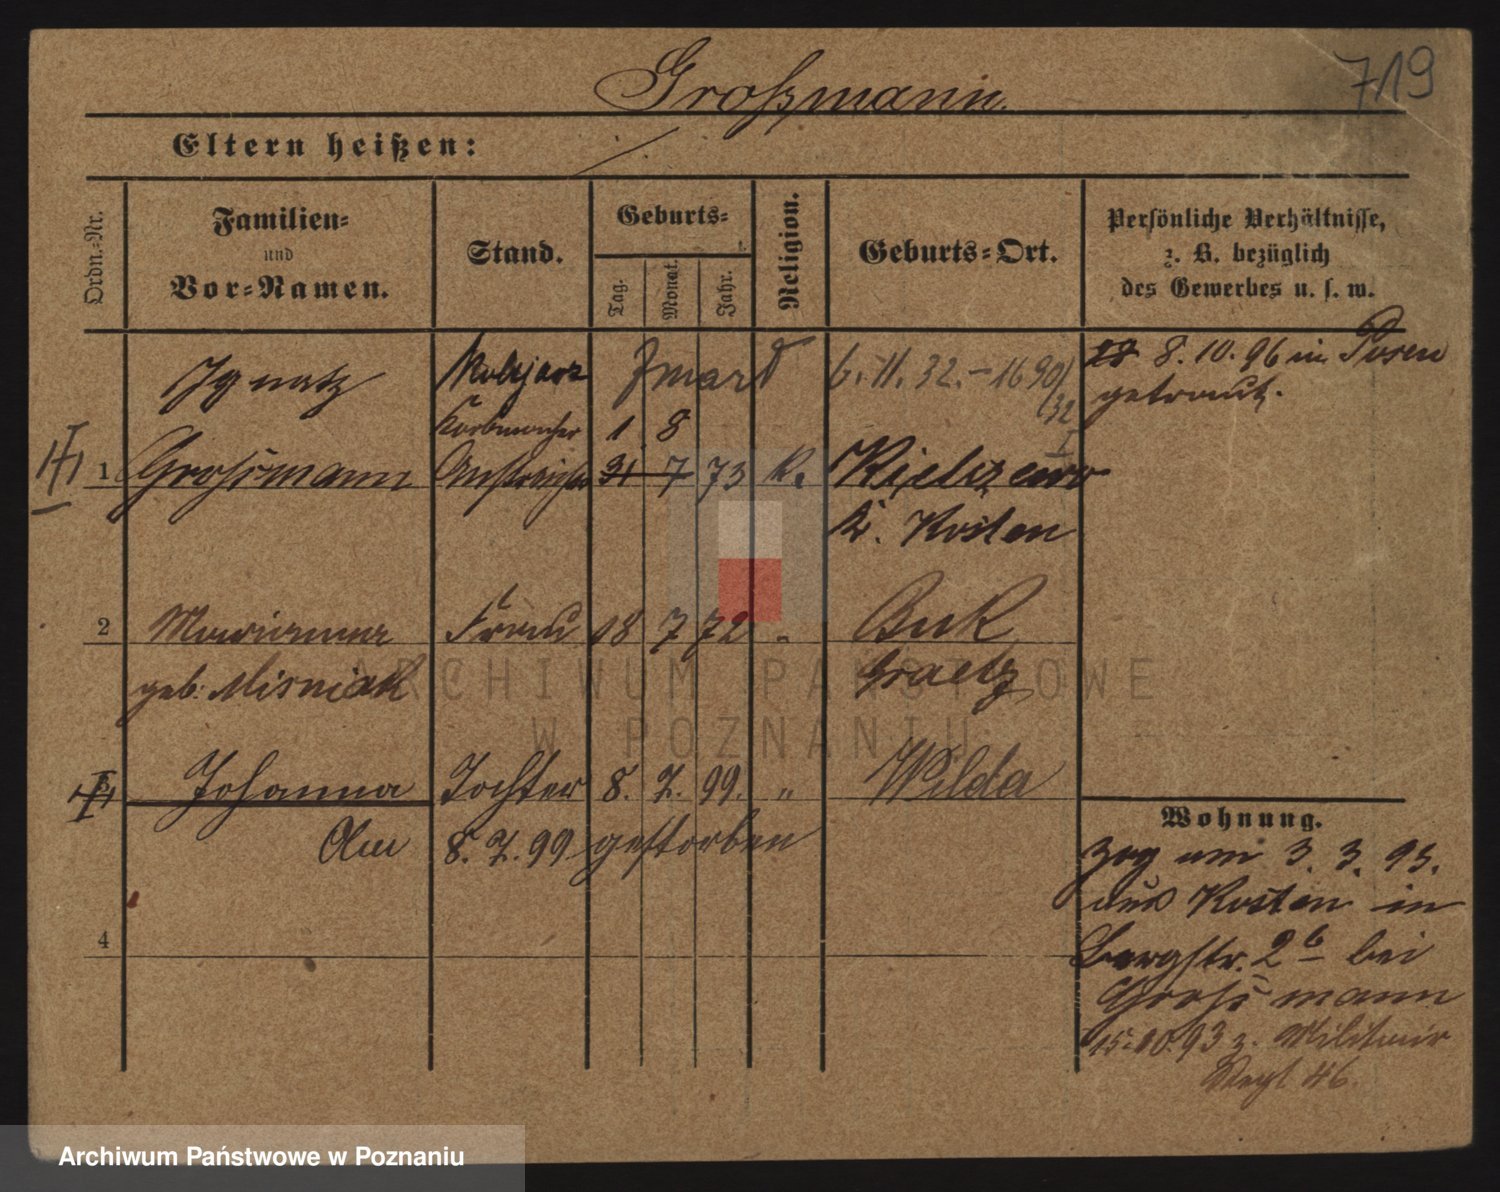 719
Großmann.
Eltern heißen: ./.
Ordn.-Nr.
Familien-
und
Vor-Namen.
Stand.
Geburts-
Tag.
Monat.
Jahr.
Religion.
Geburts-Ort.
Persönliche Verhältnisse,
z. B. bezüglich
des Gewerbes u. s. w.
Ignatz Kołejarz Zmarł 6. 11. 32. – 1690/32
I
8. 10. 96 in Posen
getraut.
Korbmacher 1 8
1 Grossmann Anstreicher 31 7 73 K. Kielczewo
Kr. Kosten
2 Marianna Frau 18 7 72 " Buk
geb. Misniak Graetz
3 Johanna Tochter 8. 7. 99. " Wilda
Am 8. 7. 99 gestorben
4
Wohnung.
Zog am 3. 3. 93.
aus Kosten in
Bergstr. 2b bei
Grossmann
15.10.93 z. Militair
Regt 46.
ARCHIWUM PAŃSTWOWE
W POZNANIU
Archiwum Państwowe w Poznaniu